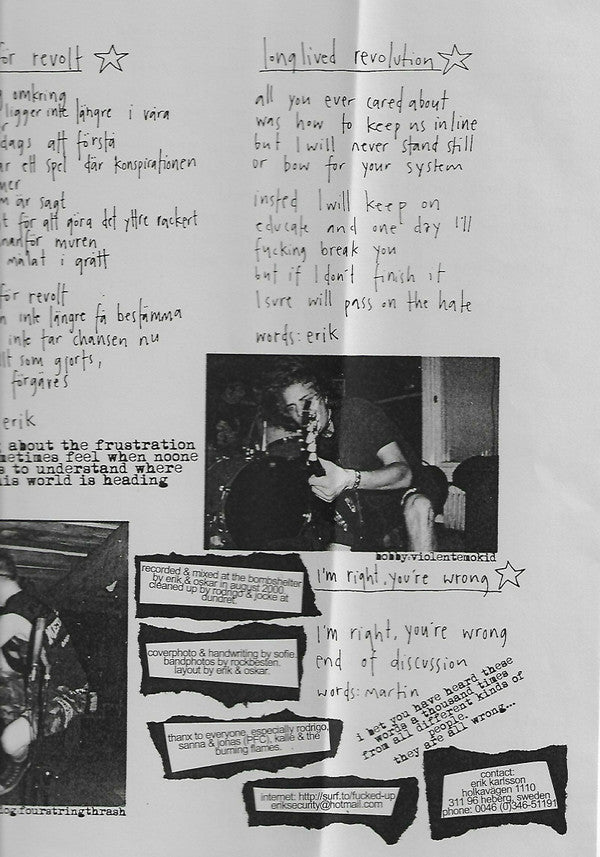 för revolt
omkring
ligger inte längre i våra
dags att förstå
är ett spel där konspirationen
är sagt
för att göra det yttre vackert
muren
målat i grått
för revolt
inte längre få bestämma
inte tar chansen nu
som gjorts,
förgäves
erik
about the frustration
sometimes feel when noone
to understand where
this world is heading
longlived revolution
all you ever cared about
was how to keep us in line
but I will never stand still
or bow for your system
insted I will keep on
educate and one day I'll
fucking break you
but if I don't finish it
I sure will pass on the hate
words: erik
mobby.violentemokid
fourstringthrash
recorded & mixed at the bombshelter
by erik & oskar in august 2000,
cleaned up by rodrigo & jocke at
dundret.
coverphoto & handwriting by sofie
bandphotos by rockbesten.
layout by erik & oskar.
thanx to everyone, especially rodrigo,
sanna & jonas (PFC), kalle & the
burning flames.
internet: http://surf.to/fucked-up
eriksecurity@hotmail.com
I'm right, you're wrong
I'm right, you're wrong
end of discussion
words: martin
i bet you have heard these
words a thousand times
from all different kinds of
people.
they are all wrong...
contact:
erik karlsson
holkavägen 1110
311 96 heberg, sweden
phone: 0046 (0)346-51191